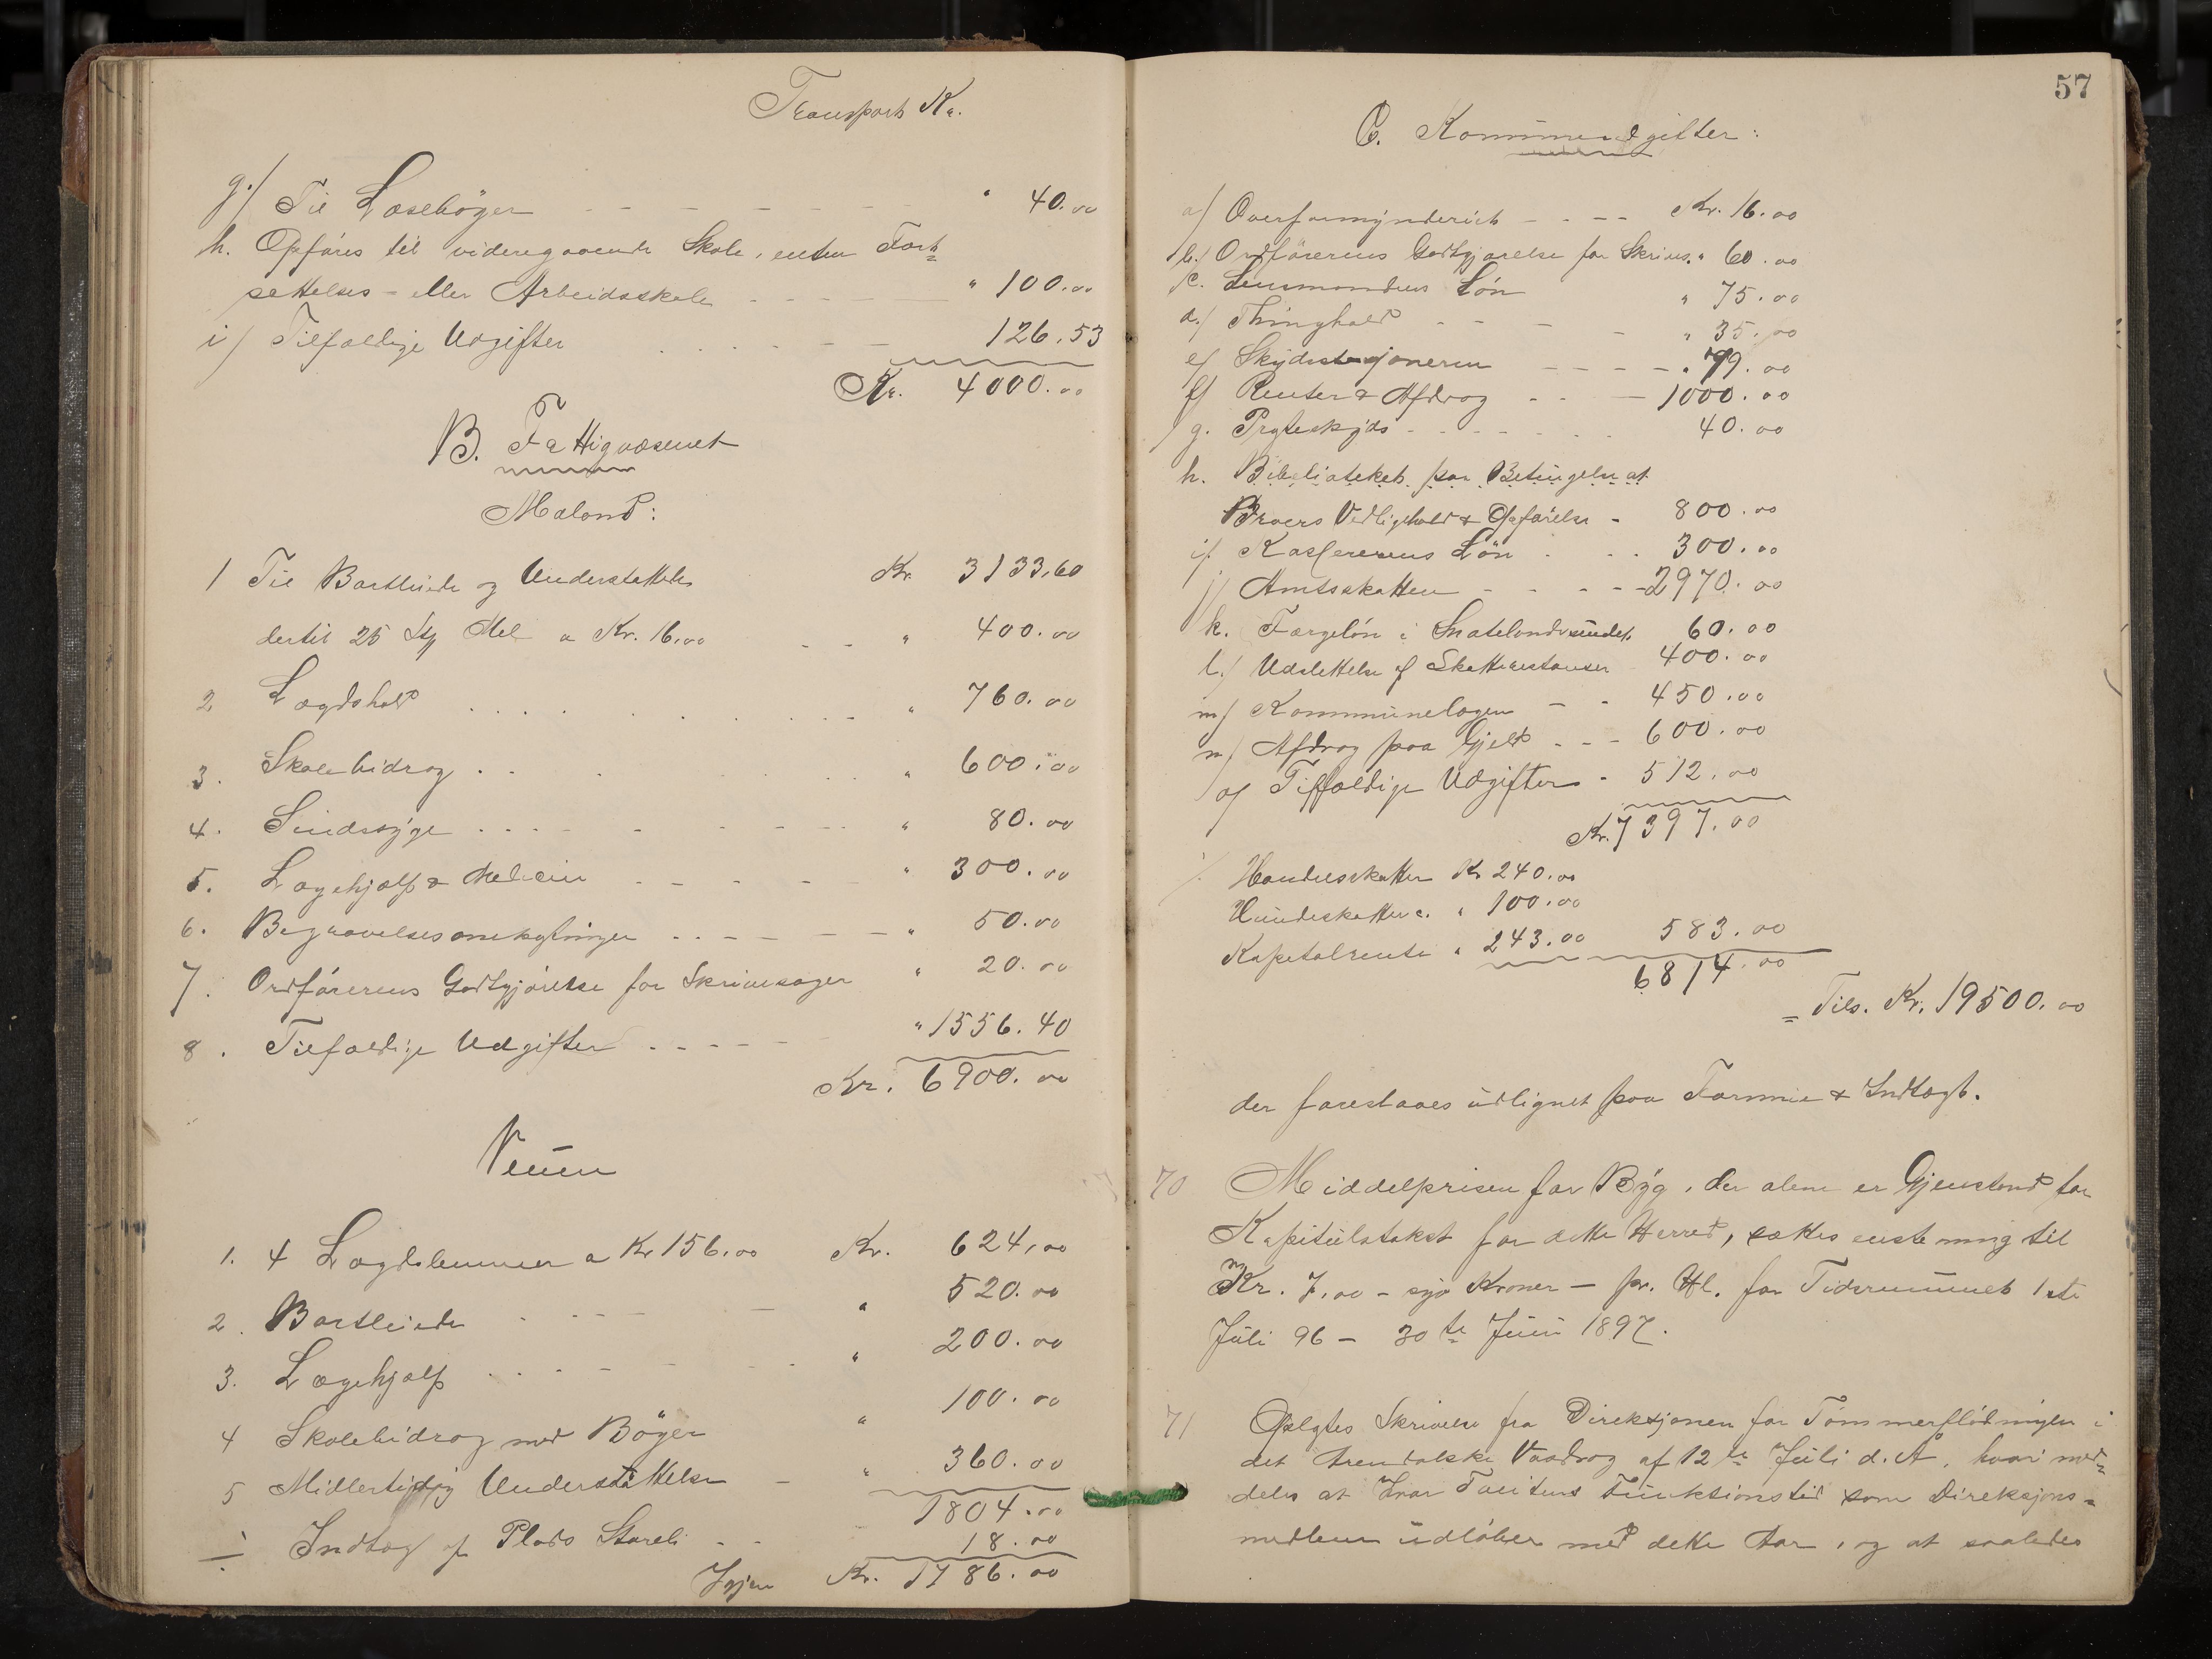 Transport Kr.
g./ Til Læsebøger - - - - - - " 40.00
h. Opføres til videregaaende Skole, enten Fort=
sættelses- eller Arbeidsskole - - - " 100.00
i/ Tilfældige Udgifter . . . - - 126.53
Kr. 4000.00
B. Fattigvæsenet
Moland:
1 Til Bortleiede og Understøttede Kr. 3133,60
dertil 25 Mel a Kr. 16.00 - - " 400.00
2 Lægdshold . . . . . . . " 760.00
3. Skolebidrag . . . . . " 600.00
4. Sindssyge . . . - - - - " 80.00
5. Lægehjælp & Medicin - - - - - " 300.00
6. Begravelsesomkostninger - - - - - " 50.00
7. Ordførerens Godtgjørelse for Skrivesager " 20.00
8. Tilfældige Udgifter - - - - - " 1556.40
Kr. 6900.00
Veum
1. 4 Lægdslemmer a Kr 156.00 Kr. 624,00
2. Bortleiede - - - - " 520.00
3. Lægehjælp . . . - - - " 200.00
4 Skolebidrag med Bøger " 100.00
5 Midlertidig Understøttelse - " 360.00
1804.00
÷ Indtægt af Plads Storeli - - 18.00
Igjen Kr. 1786.00
57
C. Kommuneudgifter:
a/ Overformynderiet - - - - Kr. 16.00
b./ Ordførerens Godtgjørelse for Skrives. " 60.00
c. Lensmandens Løn " 75.00
d./ Thinghold - - - - " 35.00
e/ Skydsstasjoneren - - - - " 79.00
f/ Renter & Afdrag - - - 1000.00
g. Prgteskyds - - - - - 40.00
h. Bibeliateket paa Betingelse at
Broers Vedligehold & Opførelse - 800.00
i/. Kasserernes Løn . . . 300.00
j/ Amtsskatten - - - - - 2970.00
k. Færgeløn i 60.00
l./ Udslettelse af Skatterestanser 400.00
m/ Kommunelægen - - 450.00
n/ Afdrag paa Gjeld - - - 600.00
o/ Tilfældige Udgifter - 512.00
Kr. 7397.00
÷ Handelsskatter Kr 240.00
Hundeskatten. " 100.00
Kapitalrente " 243.00 583.00
6814.00
= Tils. Kr. 19500.00
der foreslaaes udlignet paa Formue & Indtægt.
70 Middelprisen for Byg, der alene er Gjenstand for
Kapitulstakst for dette Herred, sættes enstemmig til
Kr. 7.00 - syv Kroner - pr. Hl. for Tidsrummet 1ste
Juli 96 - 30te Juni 1897.
71 Oplæstes Skrivelse fra Direksjonen for Tømmerflødningen i
det Arendalske Vasdrag af 12te Juli d. A, hvori med=
deles at Ivar Funksionstid som Direksjons=
medlem udløber med dette Aar, og at saaledes